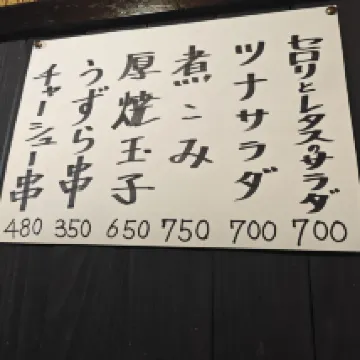 セロリとレタスのサラダ 700
ツナサラダ 700
煮こみ 750
厚焼玉子 650
うずら串 350
チャーシュー串 480